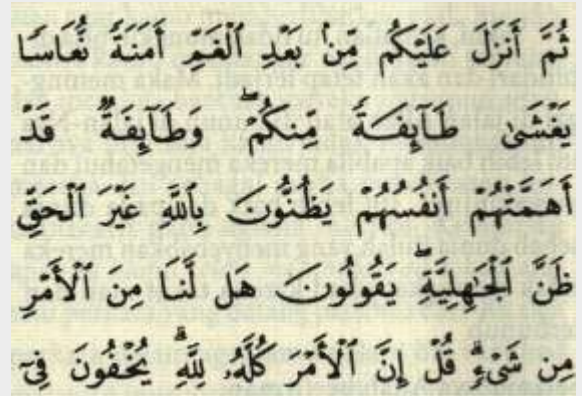 ثُمَّ أَنزَلَ عَلَيْكُم مِّنۢ بَعْدِ ٱلْغَمِّ أَمَنَةً نُّعَاسًا
يَغْشَىٰ طَآئِفَةً مِّنكُمْ ۖ وَطَآئِفَةٌ قَدْ
أَهَمَّتْهُمْ أَنفُسُهُمْ يَظُنُّونَ بِٱللَّهِ غَيْرَ ٱلْحَقِّ
ظَنَّ ٱلْجَٰهِلِيَّةِ ۖ يَقُولُونَ هَل لَّنَا مِنَ ٱلْأَمْرِ
مِن شَىْءٍ ۗ قُلْ إِنَّ ٱلْأَمْرَ كُلَّهُۥ لِلَّهِ ۗ يُخْفُونَ فِىٓ